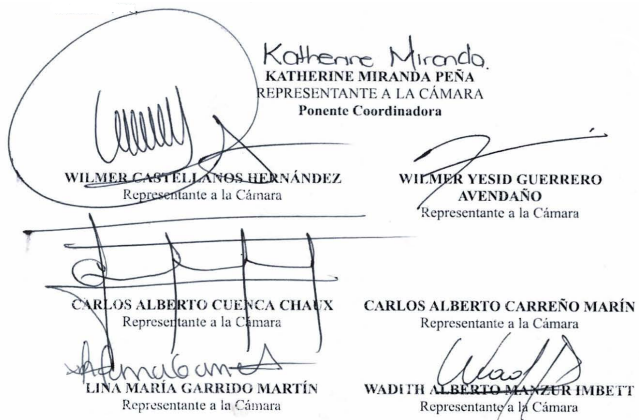 Katherine Miranda.
KATHERINE MIRANDA PEÑA
REPRESENTANTE A LA CÁMARA
Ponente Coordinadora
WILMER CASTELLANOS HERNÁNDEZ
Representante a la Cámara
WILMER YESID GUERRERO
AVENDAÑO
Representante a la Cámara
CARLOS ALBERTO CUENCA CHAUX
Representante a la Cámara
CARLOS ALBERTO CARREÑO MARÍN
Representante a la Cámara
LINA MARÍA GARRIDO MARTÍN
Representante a la Cámara
WADITH ALBERTO MANZUR IMBETT
Representante a la Cámara